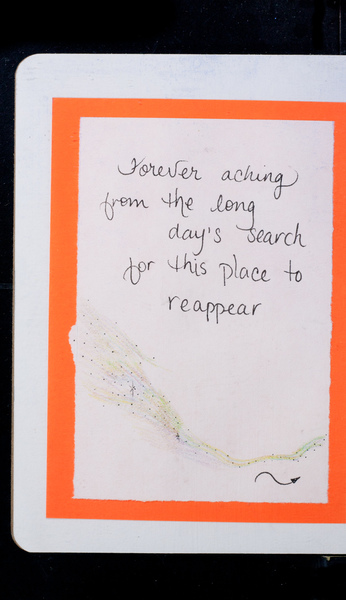 Forever aching
from the long
day's search
for this place to
reappear